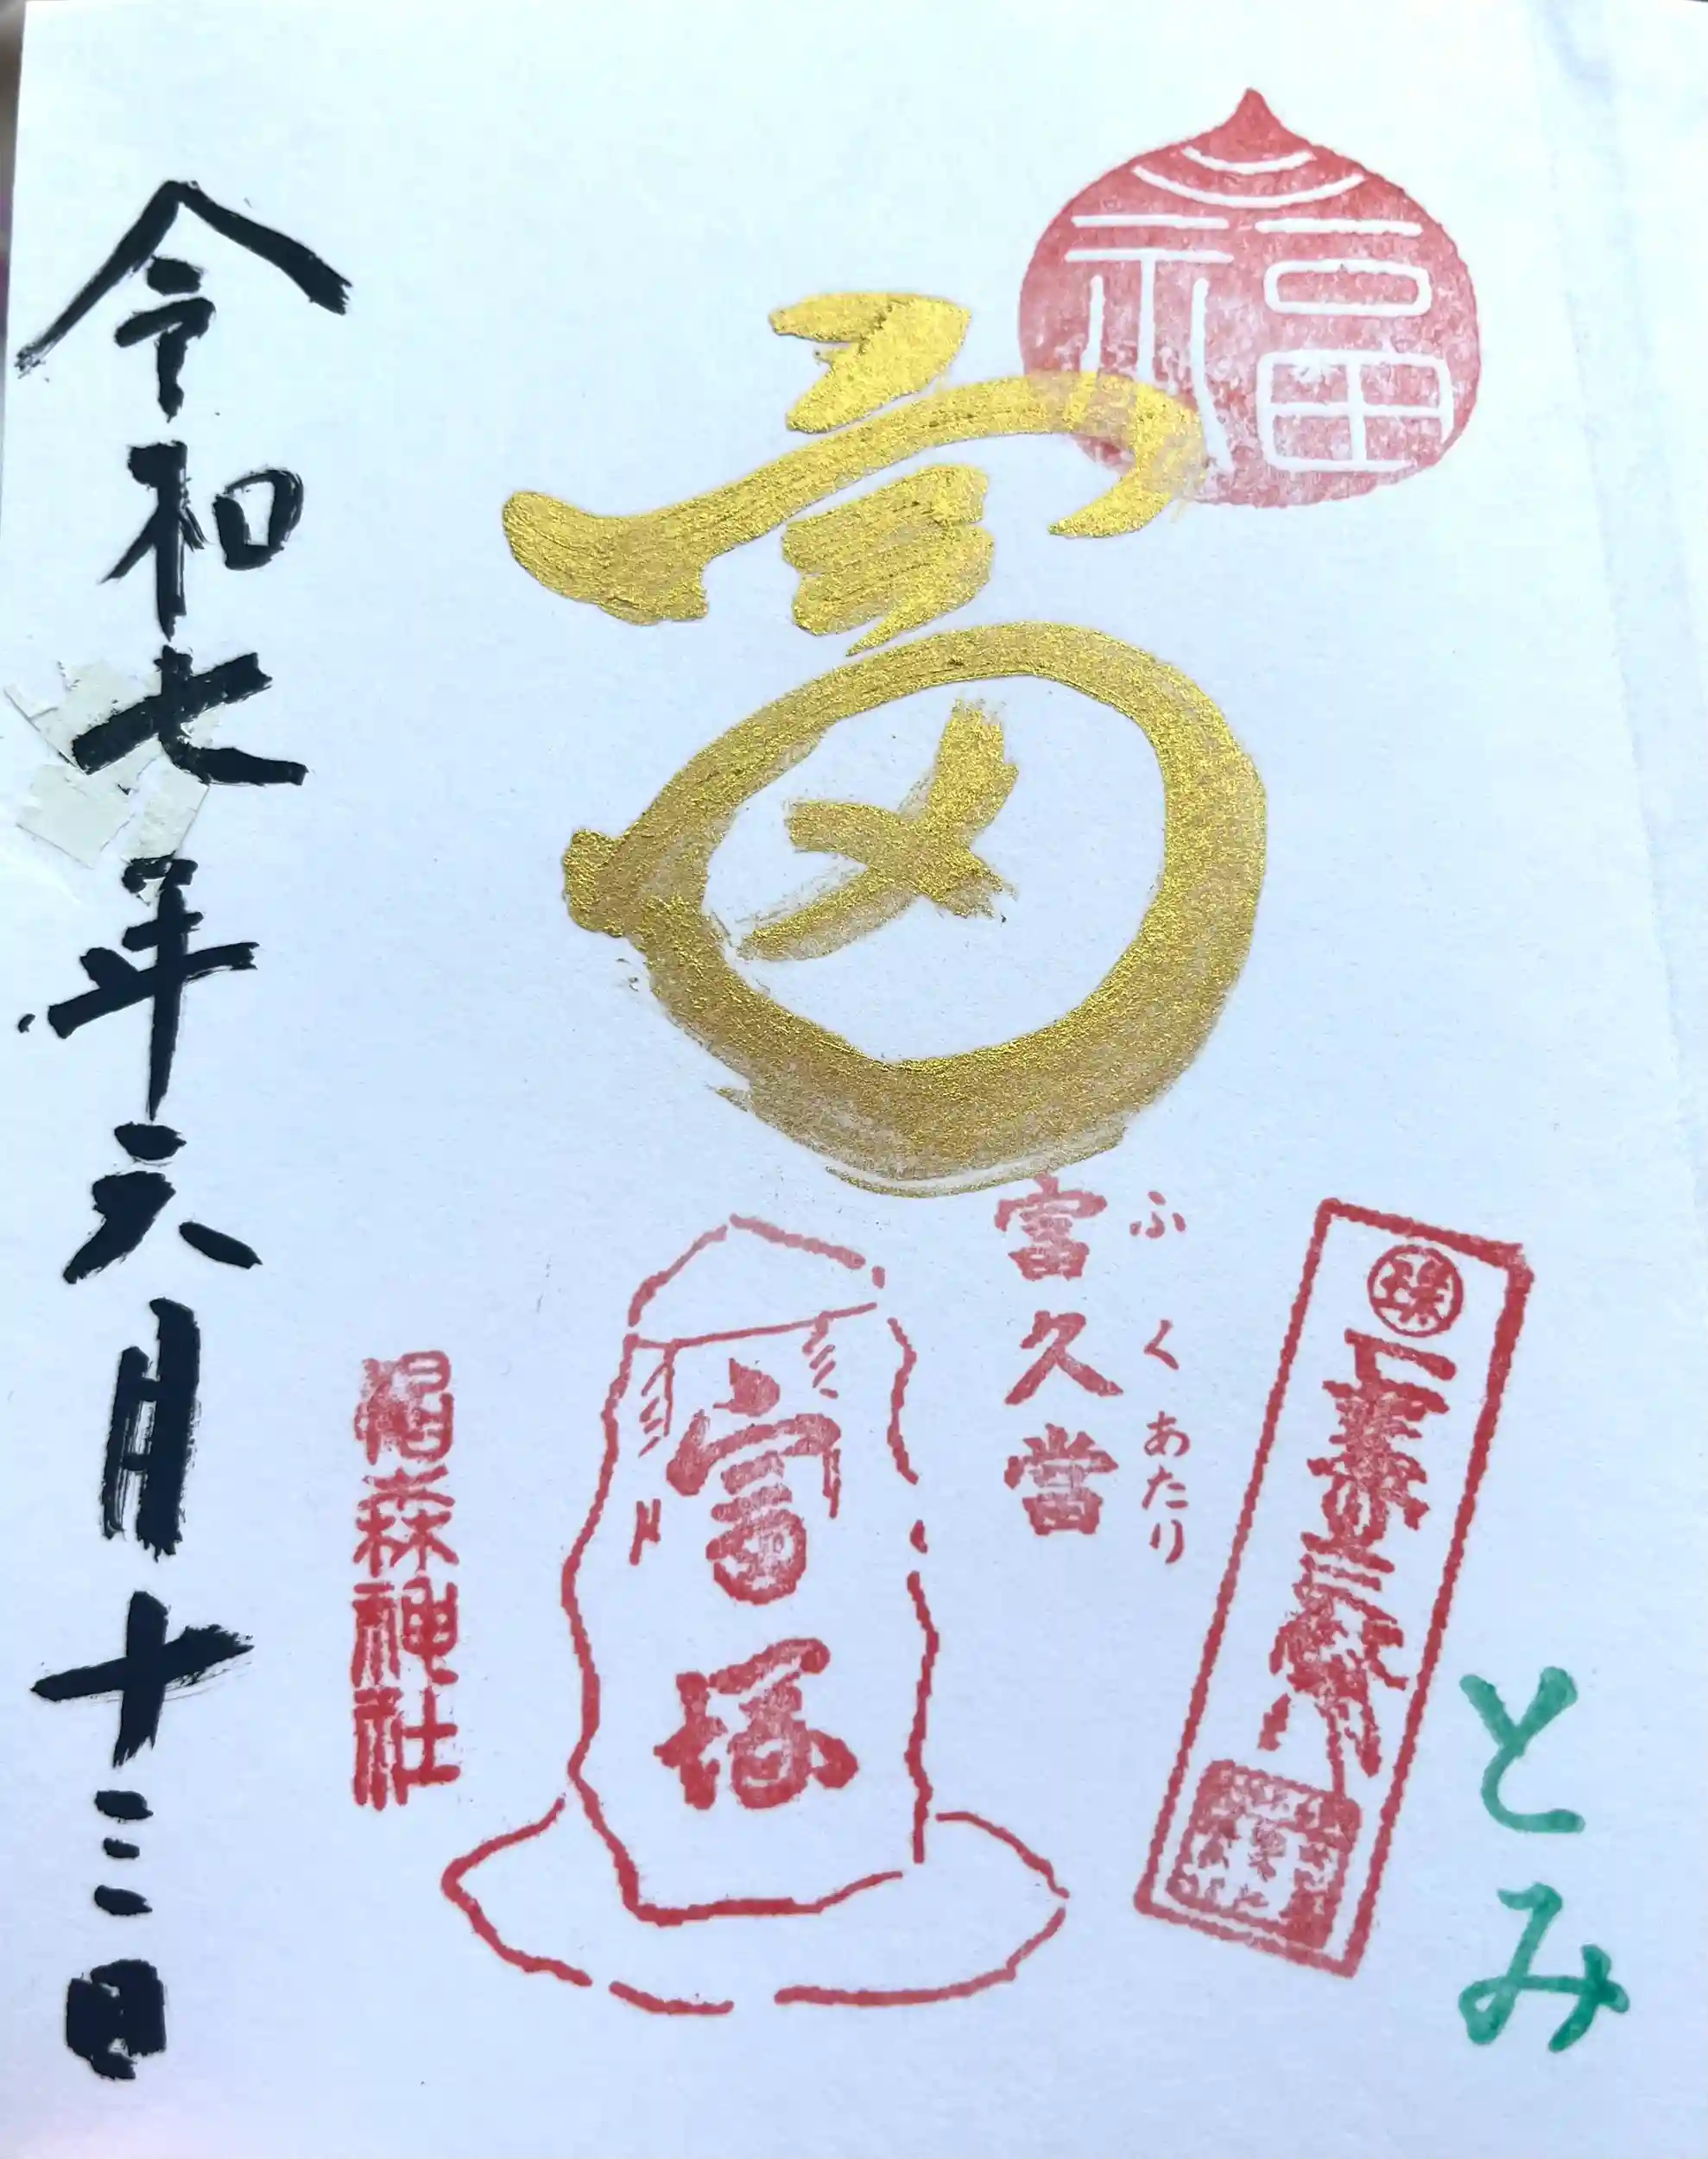 福
とみ
ふくあたり
富久當
富
富塚
椙森神社
令和七年六月十三日